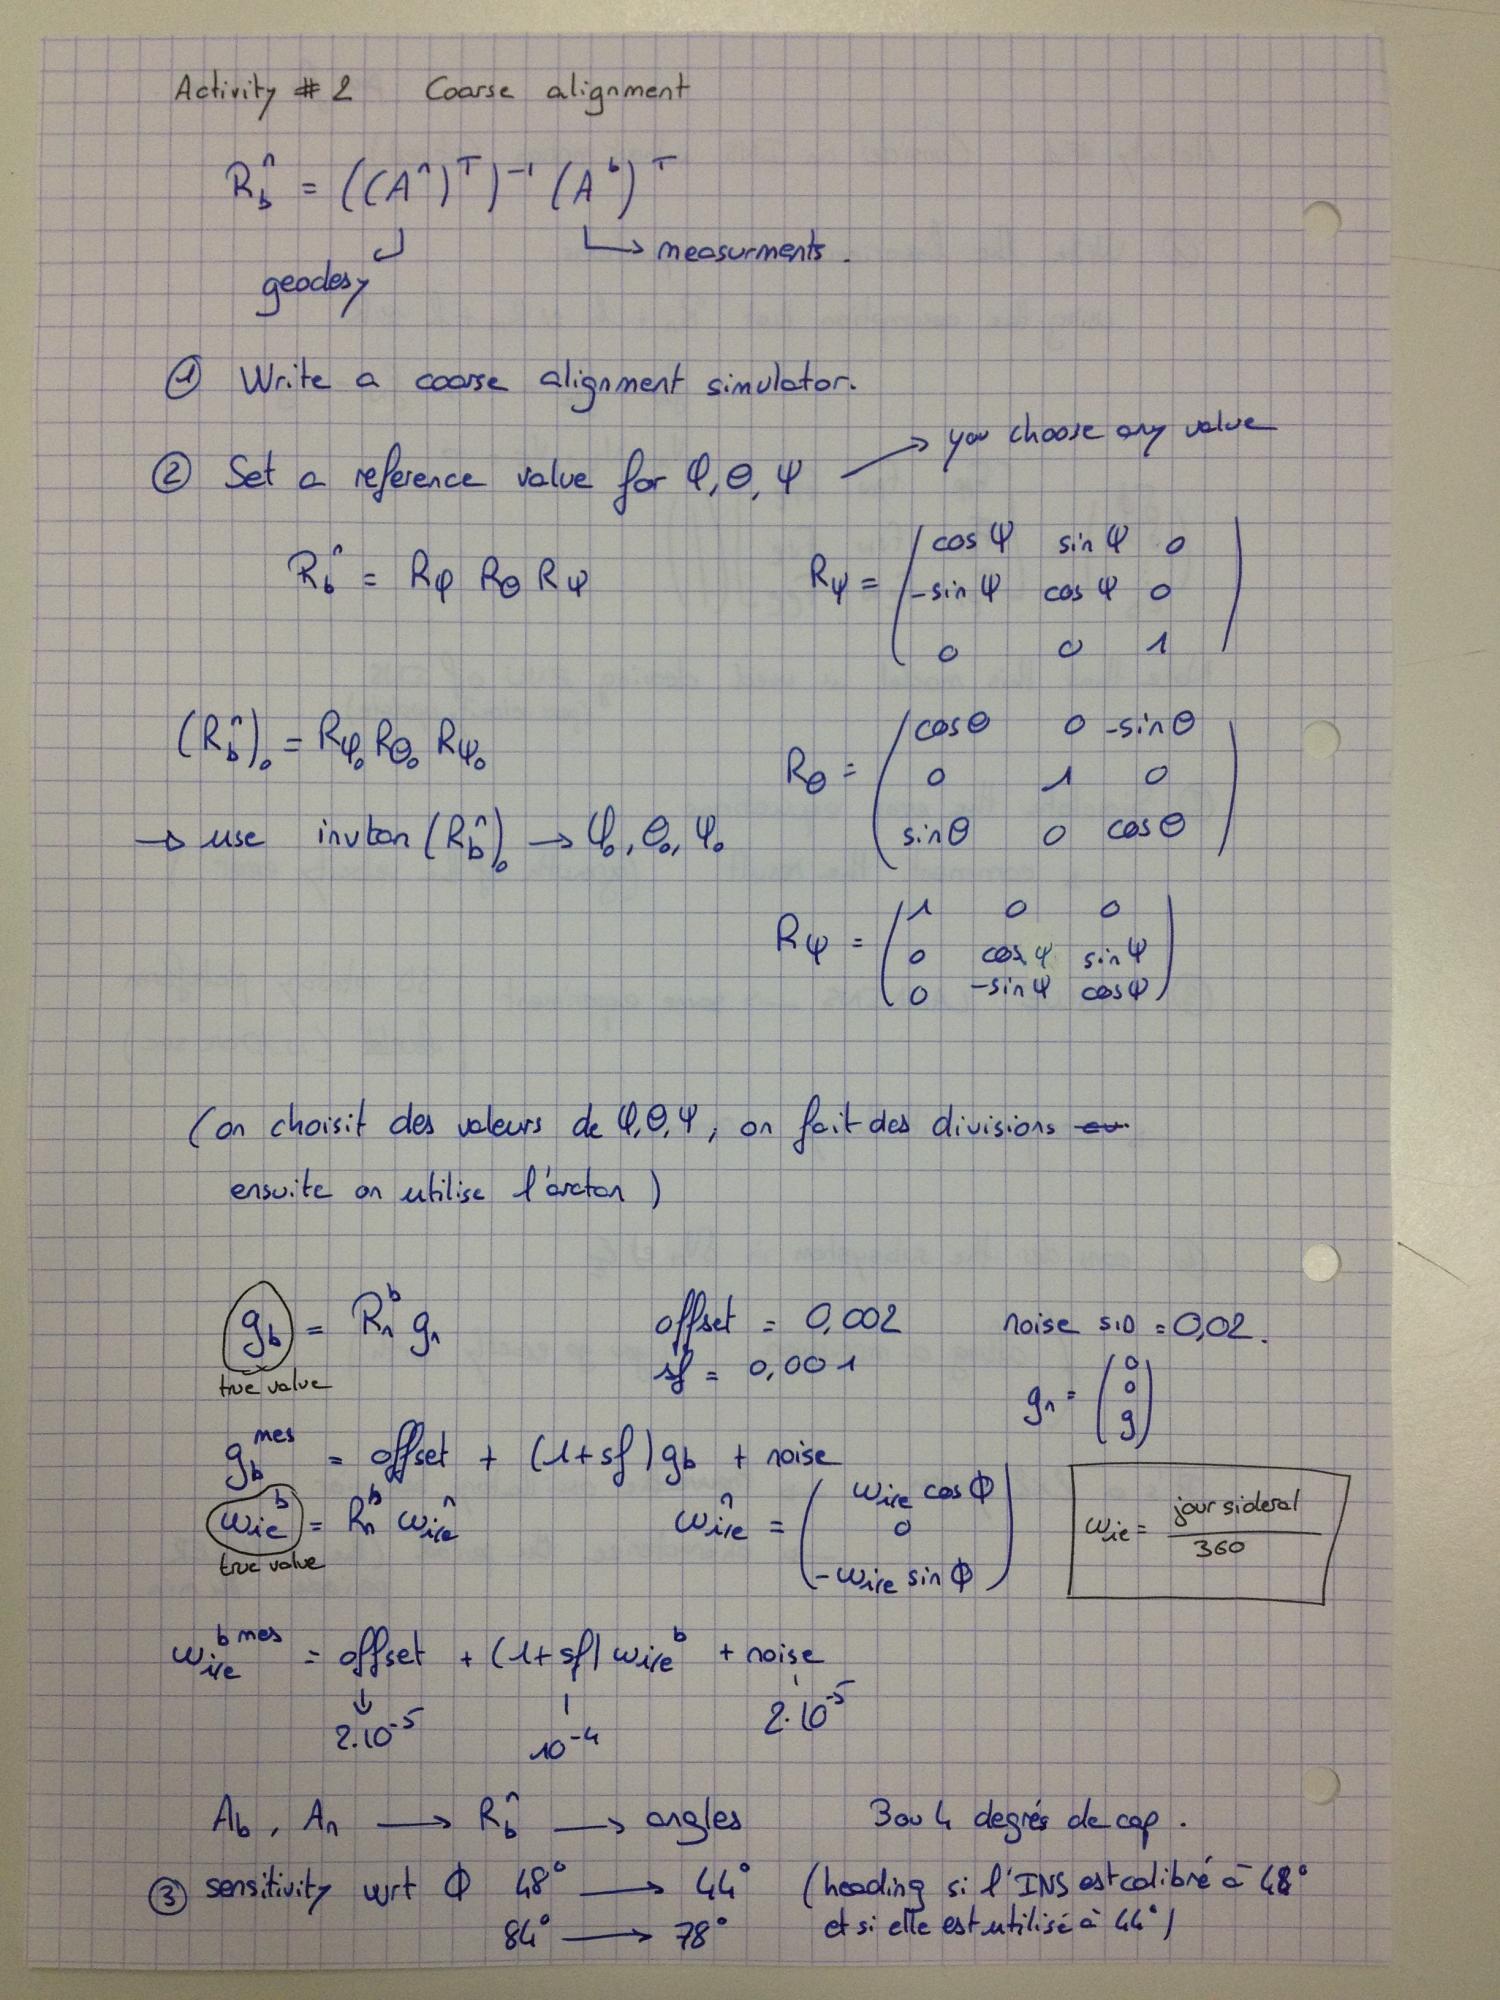 Activity # 2 Coarse alignment
R_b^n = ((A^n)^T)^-1 (A^b)^T
geodesy
measurments.
① Write a coarse alignment simulator.
② Set a reference value for φ, θ, ψ → you choose any value
R_b^n = Rφ Rθ Rψ
Rψ = ( cos ψ sin ψ 0
-sin ψ cos ψ 0
0 0 1 )
(R_b^n)_0 = Rφ_0 Rθ_0 Rψ_0
Rθ = ( cos θ 0 -sin θ
0 1 0
sin θ 0 cos θ )
→ use invtan (R_b^n)_0 → φ_0, θ_0, ψ_0
Rφ = ( 1 0 0
0 cos φ sin φ
0 -sin φ cos φ )
(on choisit des valeurs de φ, θ, ψ, on fait des divisions
ensuite on utilise l'arctan)
g_b = R_n^b g_n offset = 0,002 noise STD = 0,02.
true value sf = 0,001
g_n = ( 0
0
g )
g_b^mes = offset + (1+sf) g_b + noise
ω_ie^b = R_n^b ω_i/e^n
true value
ω_i/e^n = ( ω_i/e cos ϕ
0
-ω_i/e sin ϕ )
ω_ie = jour sideral / 360
ω_i/e^b mes = offset + (1+sf) ω_i/e^b + noise
2.10^-5 10^-4 2.10^-5
A_b, A_n → R_b^n → angles 3 ou 4 degrés de cap.
③ sensitivity wrt ϕ 48° → 44° (heading si l'INS est calibré à 48°
84° → 78° et si elle est utilisé à 44°)